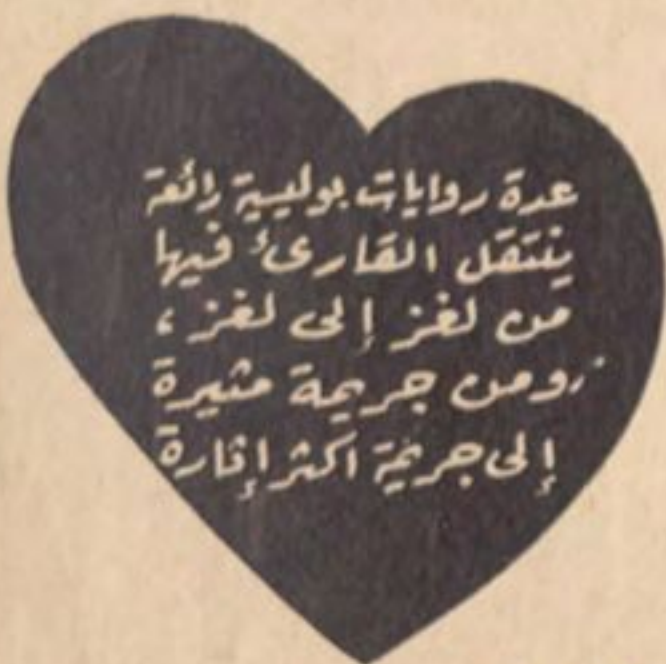 عدة روايات بوليسية رائعة
ينتقل القارئ فيها
من لغز إلى لغز ،
ومن جريمة مثيرة
إلى جريمة اكثر إثارة